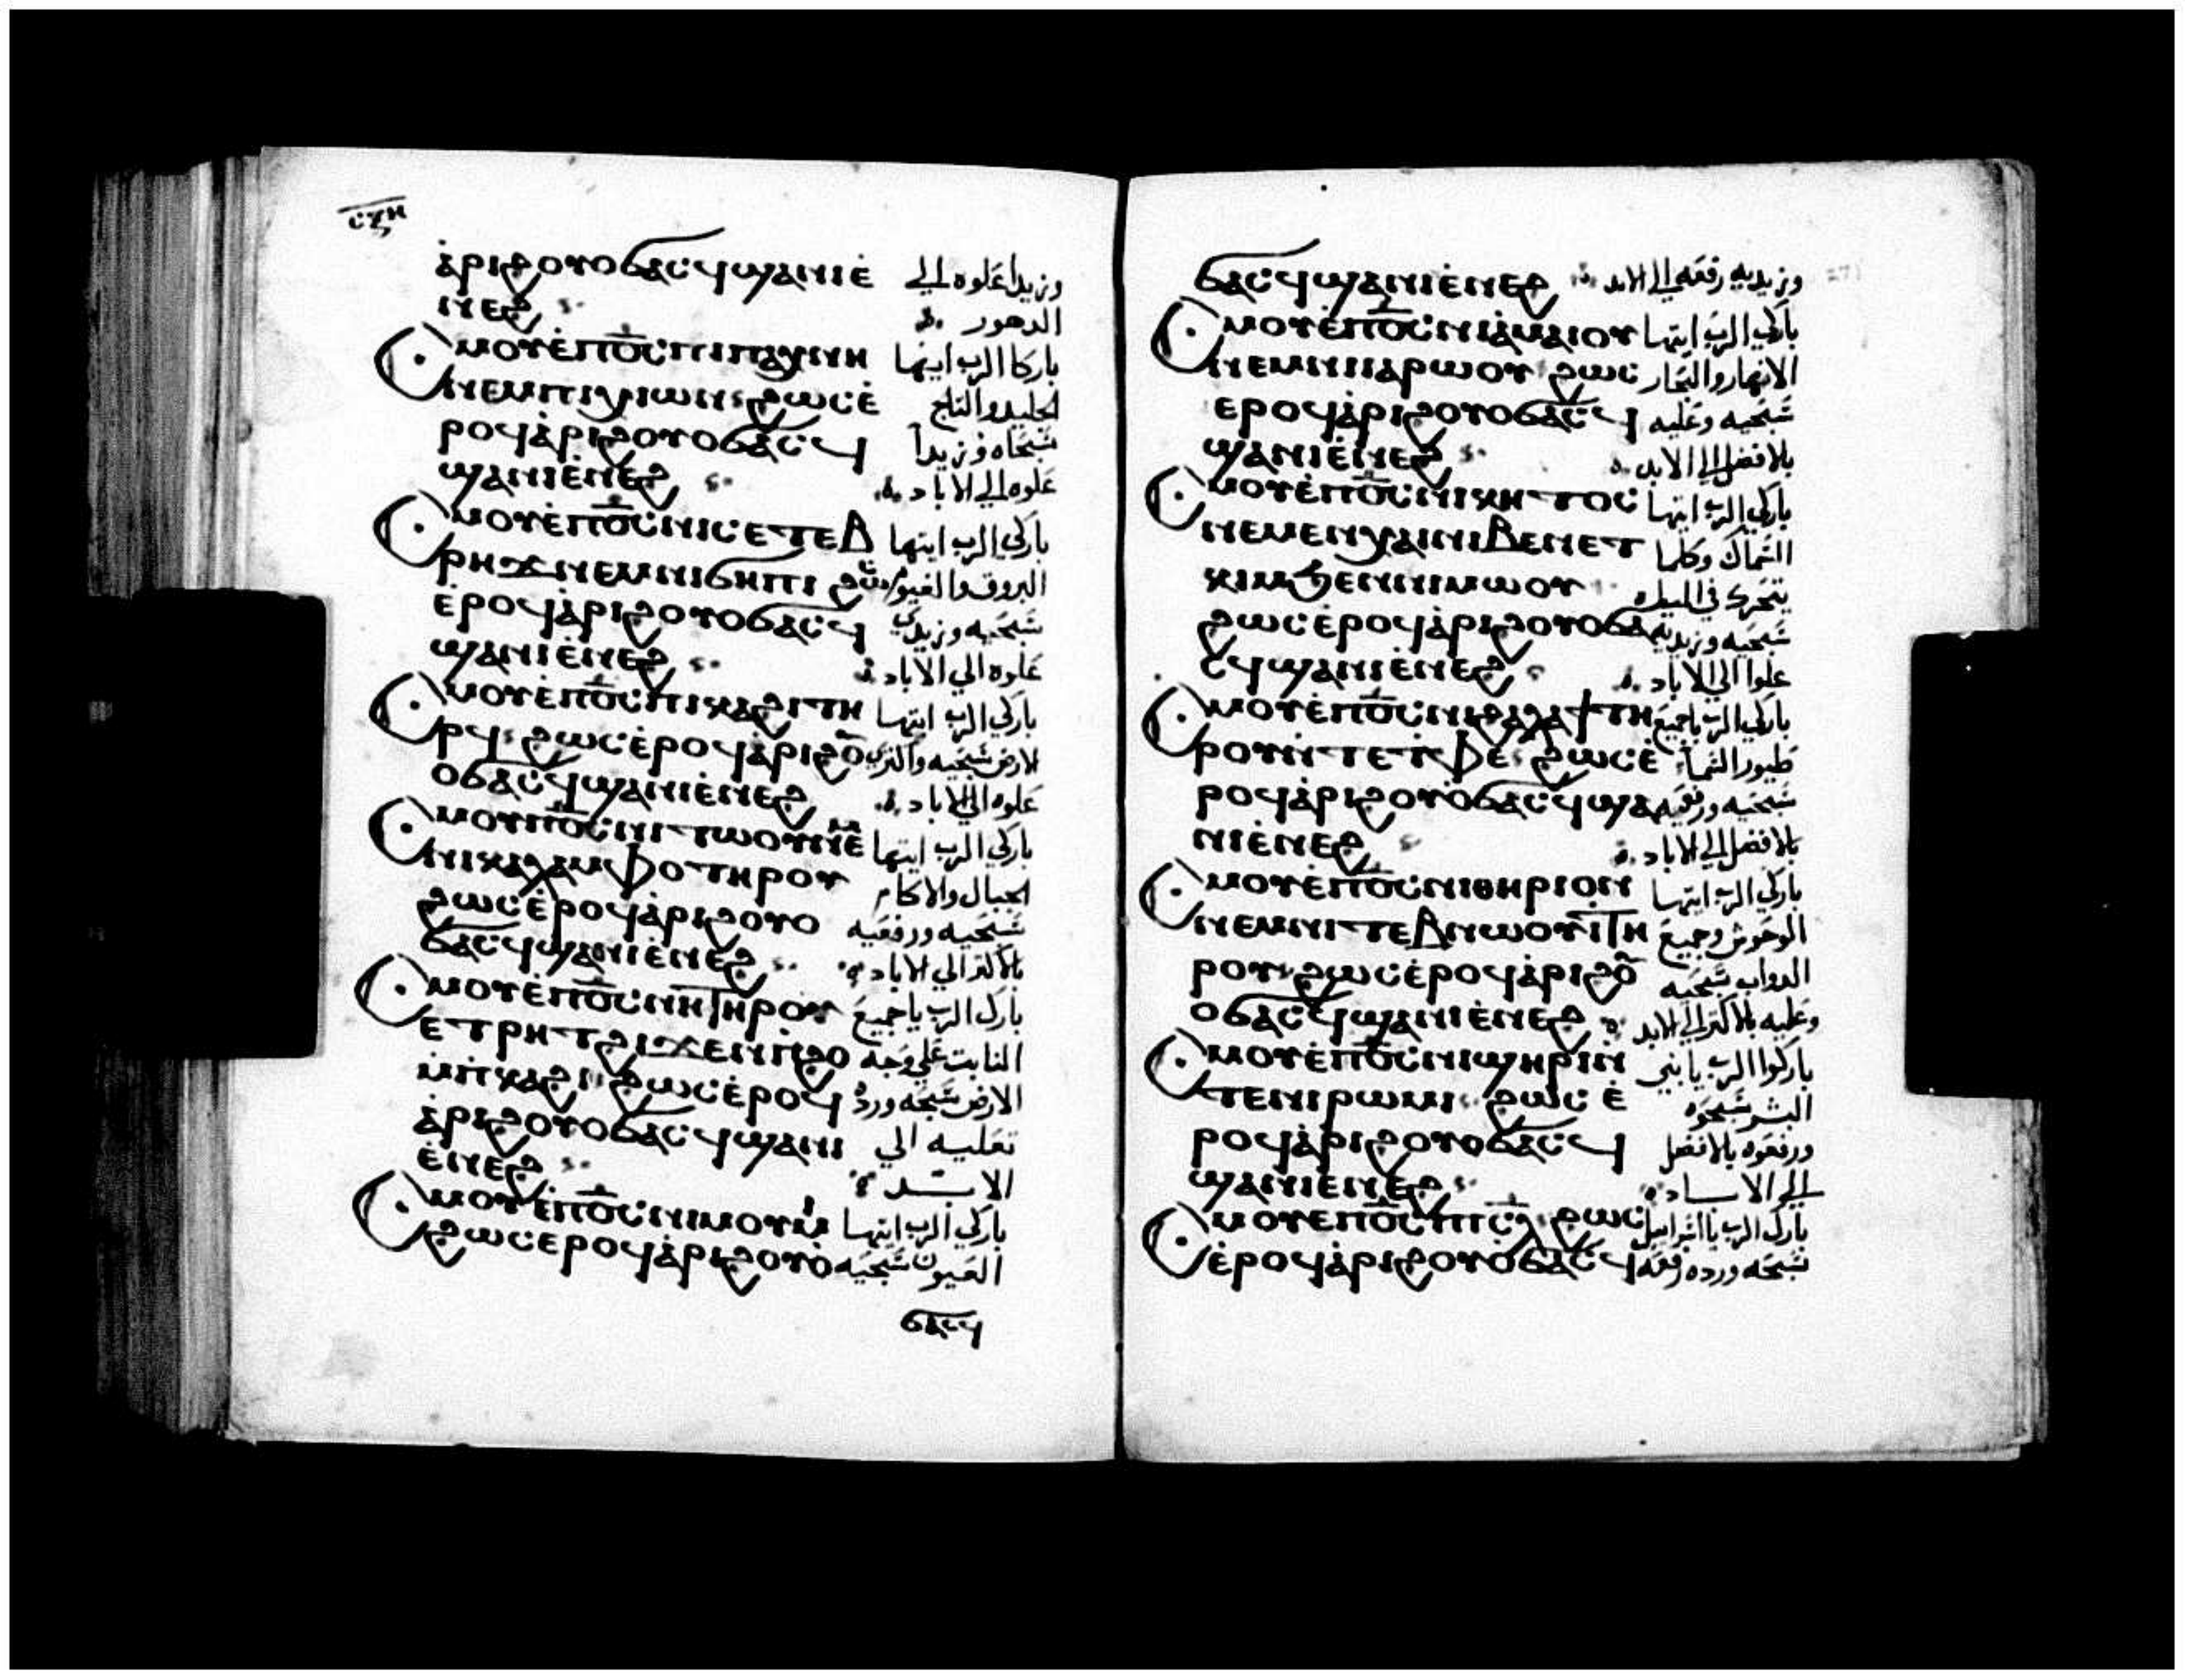 ⲥⲝⲏ
ⲁ̀ⲣⲓϩⲟⲩⲟϭⲁⲥϥϣⲁⲛⲓⲉ̀ وزيدا علوه الي
ⲛⲉϩ الدهور
Ⲥⲙⲟⲩⲉ̀ⲡⲟ̅ⲥ̅ⲡⲓⲡⲁⲭⲛⲏ باركا الرب ايتها
ⲛⲉⲙⲡⲓⲭⲓⲱⲛ ϩⲱⲥⲉ̀ الجليد والثلج
ⲣⲟϥⲁ̀ⲣⲓϩⲟⲩⲟϭⲁⲥϥ سبحاه وزيدا
ϣⲁⲛⲓⲉ̀ⲛⲉϩ علوه الي الاباد
Ⲥⲙⲟⲩⲉ̀ⲡⲟ̅ⲥ̅ⲛⲓⲥⲉⲧⲉⲃ باركي الرب ايتها
ⲣⲏϫⲛⲉⲙⲛⲓϭⲏⲡⲓ ϩⲱⲥ البروق والغيوم
ⲉ̀ⲣⲟϥⲁ̀ⲣⲓϩⲟⲩⲟϭⲁⲥϥ سبحيه وزيدي
ϣⲁⲛⲓⲉ̀ⲛⲉϩ علوه الي الاباد
Ⲥⲙⲟⲩⲉ̀ⲡⲟ̅ⲥ̅ⲡⲓⲕⲁϩⲓⲧⲏ باركي الرب ايتها
ⲣϥ ϩⲱⲥⲉ̀ⲣⲟϥⲁ̀ⲣⲓϩⲟ̅ الارض سبحيه واكثري
ⲟϭⲁⲥϥϣⲁⲛⲓⲉ̀ⲛⲉϩ علوه الي الاباد
Ⲥⲙⲟⲩⲡⲟ̅ⲥ̅ⲛⲓⲧⲱⲟⲩⲛⲉⲙ باركي الرب ايتها
ⲛⲓⲕⲁⲗⲁⲙⲫⲟⲧⲏⲣⲟⲩ الجبال والاكام
ϩⲱⲥⲉ̀ⲣⲟϥⲁ̀ⲣⲓϩⲟⲩⲟ سبحيه ورفعيه
ϭⲁⲥϥϣⲁⲛⲓⲉ̀ⲛⲉϩ بالاكثر الي الاباد
Ⲥⲙⲟⲩⲉ̀ⲡⲟ̅ⲥ̅ⲛⲏⲧⲏⲣⲟⲩ بارك الرب يا جميع
ⲉⲧⲣⲏⲧϩⲓϫⲉⲛⲡ̀ϩⲟ النابت علي وجه
ⲙ̀ⲡ̀ⲕⲁϩⲓ ϩⲱⲥⲉ̀ⲣⲟϥ الارض سبحه وزد
ⲁ̀ⲣⲓϩⲟⲩⲟϭⲁⲥϥϣⲁⲛⲓ تعليه الي
ⲉ̀ⲛⲉϩ الابد
Ⲥⲙⲟⲩⲉ̀ⲡⲟ̅ⲥ̅ⲛⲓⲙⲟⲩⲙⲓ باركي الرب ايتها
ϩⲱⲥⲉⲣⲟϥⲁ̀ⲣⲓϩⲟⲩⲟ̀ العيون سبحيه
ϭⲁⲥϥ
ϭⲁⲥϥϣⲁⲛⲓⲉ̀ⲛⲉϩ وزيديه رفعه الي الابد
Ⲥⲙⲟⲩⲉ̀ⲡⲟ̅ⲥ̅ⲛⲓⲁ̀ⲙⲁⲓⲟⲩ باركي الرب ايتها
ⲛⲉⲙⲛⲓⲓⲁⲣⲱⲟⲩ ϩⲱⲥ الانهار والبحار
ⲉⲣⲟϥⲁ̀ⲣⲓϩⲟⲩⲟϭⲁⲥϥ سبحيه وعليه
ϣⲁⲛⲓⲉ̀ⲛⲉϩ بالافضل الي الابد
Ⲥⲙⲟⲩⲉ̀ⲡⲟ̅ⲥ̅ⲛⲓⲕⲏⲧⲟⲥ باركي الرب ايتها
ⲛⲉⲙⲉⲛⲭⲁⲓⲛⲓⲃⲉⲛⲉⲧ السماك وكلما
ⲕⲓⲙϧⲉⲛⲛⲓⲙⲱⲟⲩ يتحرك في المياه
ϩⲱⲥⲉ̀ⲣⲟϥⲁ̀ⲣⲓϩⲟⲩⲟϭⲁ سبحيه وزيديه
ⲥϥϣⲁⲛⲓⲉ̀ⲛⲉϩ علوا الي الاباد
Ⲥⲙⲟⲩⲉ̀ⲡⲟ̅ⲥ̅ⲛⲓϩⲁⲗⲁϯⲧⲏ باركي الرب يا جميع
ⲣⲟⲩⲛ̀ⲧⲉⲧ̀ⲫⲉ ϩⲱⲥⲉ̀ طيور السما
ⲣⲟϥⲁ̀ⲣⲓϩⲟⲩⲟ̀ϭⲁⲥϥϣⲁ سبحيه ورفعيه
ⲛⲓⲉ̀ⲛⲉϩ بالافضل الي الاباد
Ⲥⲙⲟⲩⲉ̀ⲡⲟ̅ⲥ̅ⲛⲓⲑⲏⲣⲓⲟⲛ باركي الرب ايتها
ⲛⲉⲙⲛⲓⲧⲉⲃⲛⲱⲟⲩⲓ̀ⲧⲏ الوحوش وجميع
ⲣⲟⲩ ϩⲱⲥⲉ̀ⲣⲟϥⲁ̀ⲣⲓϩⲟ̅ الدواب سبحيه
ⲟϭⲁⲥϥϣⲁⲛⲓⲉ̀ⲛⲉϩ وعليه بالاكثر الي الابد
Ⲥⲙⲟⲩⲉ̀ⲡⲟ̅ⲥ̅ⲛⲓϣⲏⲣⲓⲛ̀ باركوا الرب يا بني
ⲧⲉⲛⲓⲣⲱⲙⲓ ϩⲱⲥ ⲉ̀ البشر سبحوه
ⲣⲟϥⲁ̀ⲣⲓϩⲟⲩⲟϭⲁⲥϥ ورفعوه بالافضل
ϣⲁⲛⲓⲉⲛⲉϩ الي الاباد
Ⲥⲙⲟⲩⲉⲡⲟ̅ⲥ̅ⲡⲓⲥ̅ⲗ̅ ϩⲱⲥ بارك الرب يا اسراييل
ⲉ̀ⲣⲟϥⲁ̀ⲣⲓϩⲟⲩⲟ̀ϭⲁⲥϥ سبحه وزده رفعه